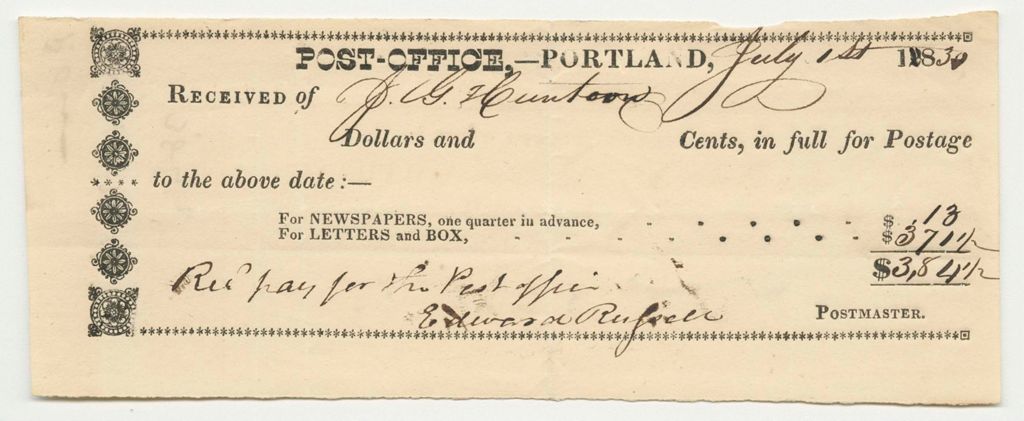 POST-OFFICE,—PORTLAND, July 1st 1830
RECEIVED of J. G. Huntoon
Dollars and Cents, in full for Postage
to the above date:—
For NEWSPAPERS, one quarter in advance, $ ,13
For LETTERS and BOX, $ 3,71 1/2
$3,84 1/2
Rec'd pay for the Post office
Edward Russell POSTMASTER.